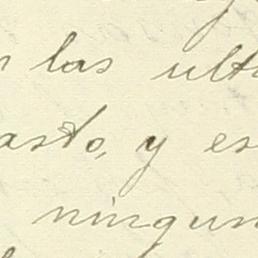 las ult
asto, y es
ningun